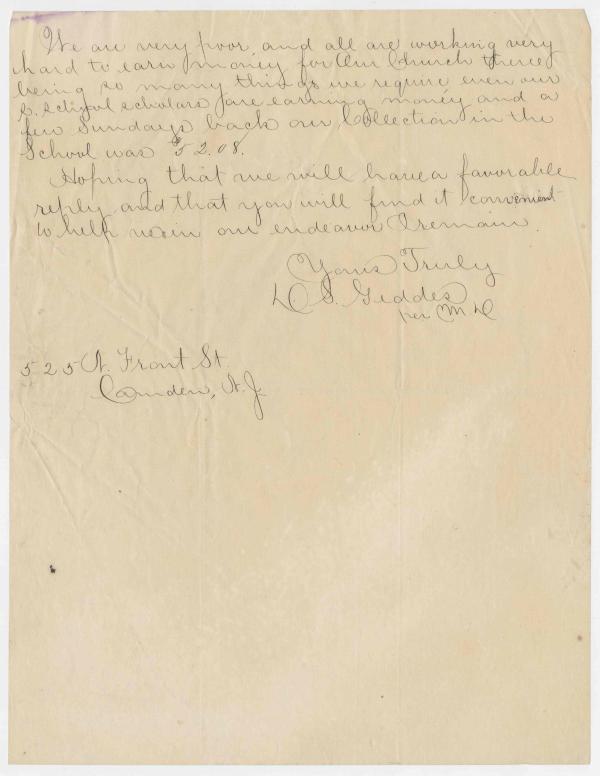 We are very poor, and all are working very
hard to earn money for Our Church there
being so many things we require even our
S. School scholars are earning money and a
few Sundays back our Collection in the
School was $52.08.
Hoping that we will have a favorable
reply and that you will find it convenient
to help us in our endeavor I remain.
Yours Truly
S. Geddes
per M
525 N. Front St.
Camden, N.J